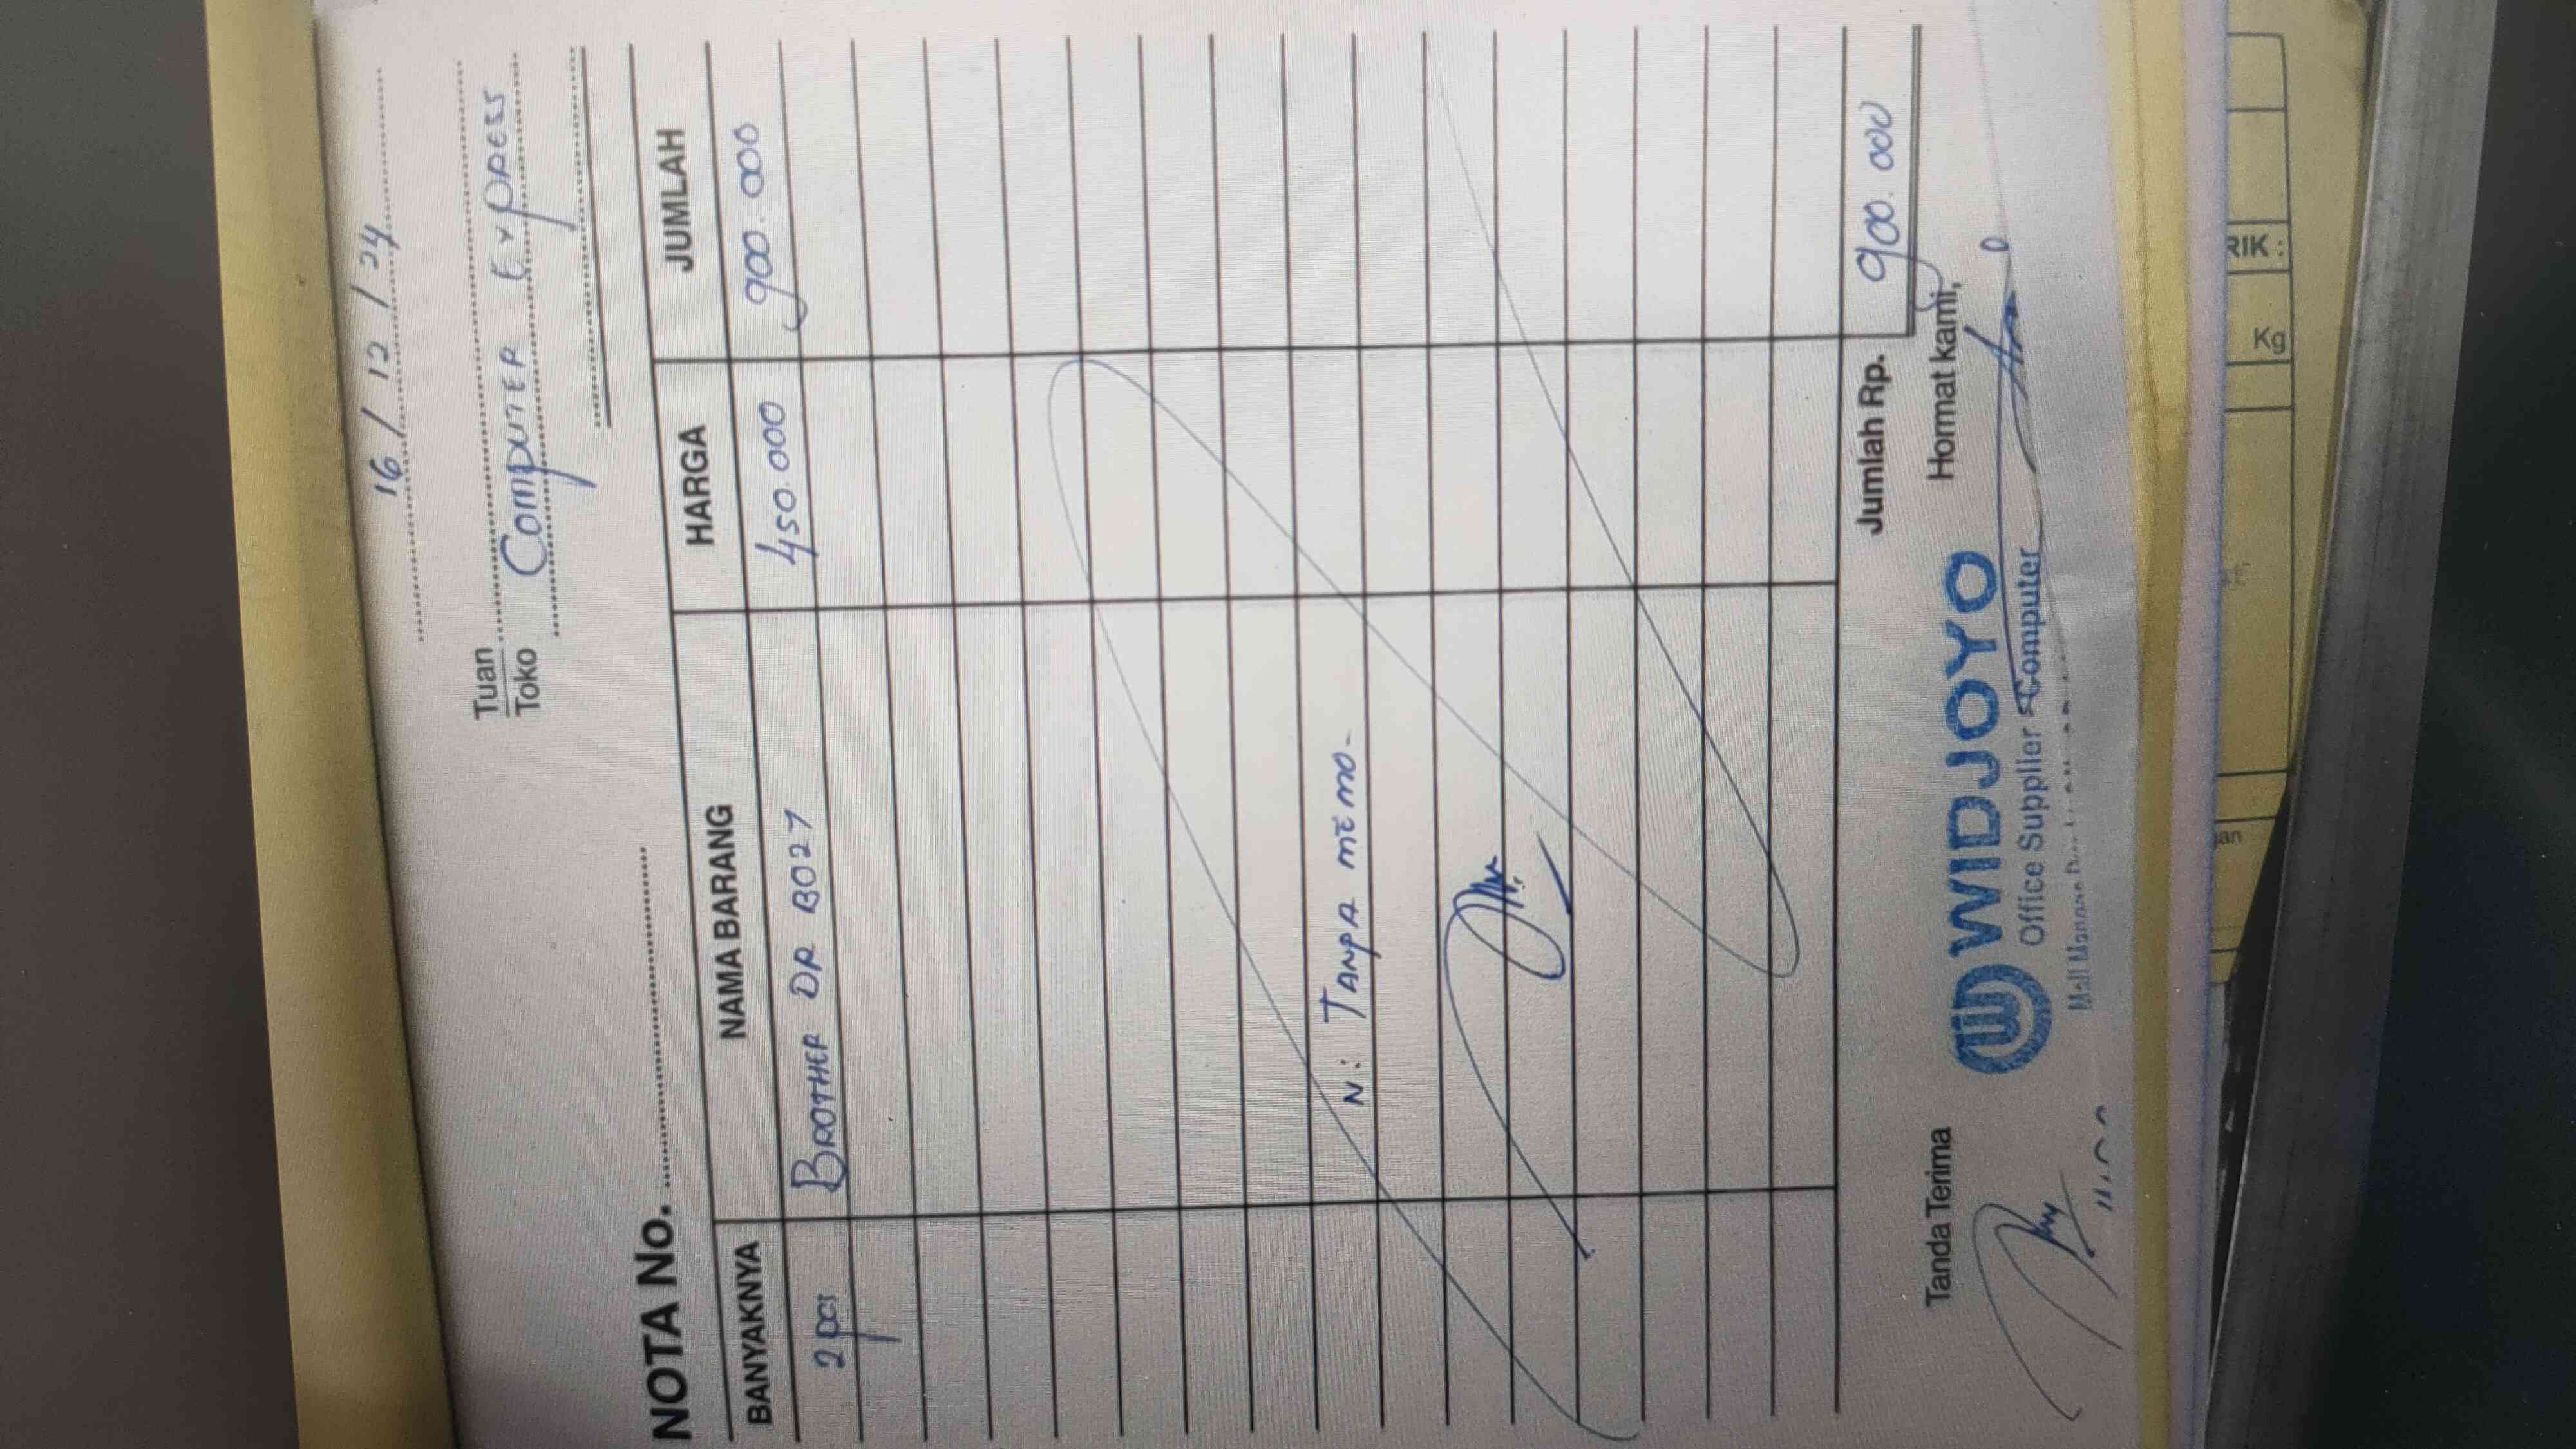 16 / 12 / 24
Tuan
Toko Computer Express
NOTA No.
BANYAKNYA NAMA BARANG HARGA JUMLAH
2 pcs BROTHER DR B027 450.000 900.000
N: TANPA MEMO-
Jumlah Rp. 900.000
Tanda Terima Hormat kami,
WIDJOYO
Office Supplier & Computer
Mall
RIK :
Kg